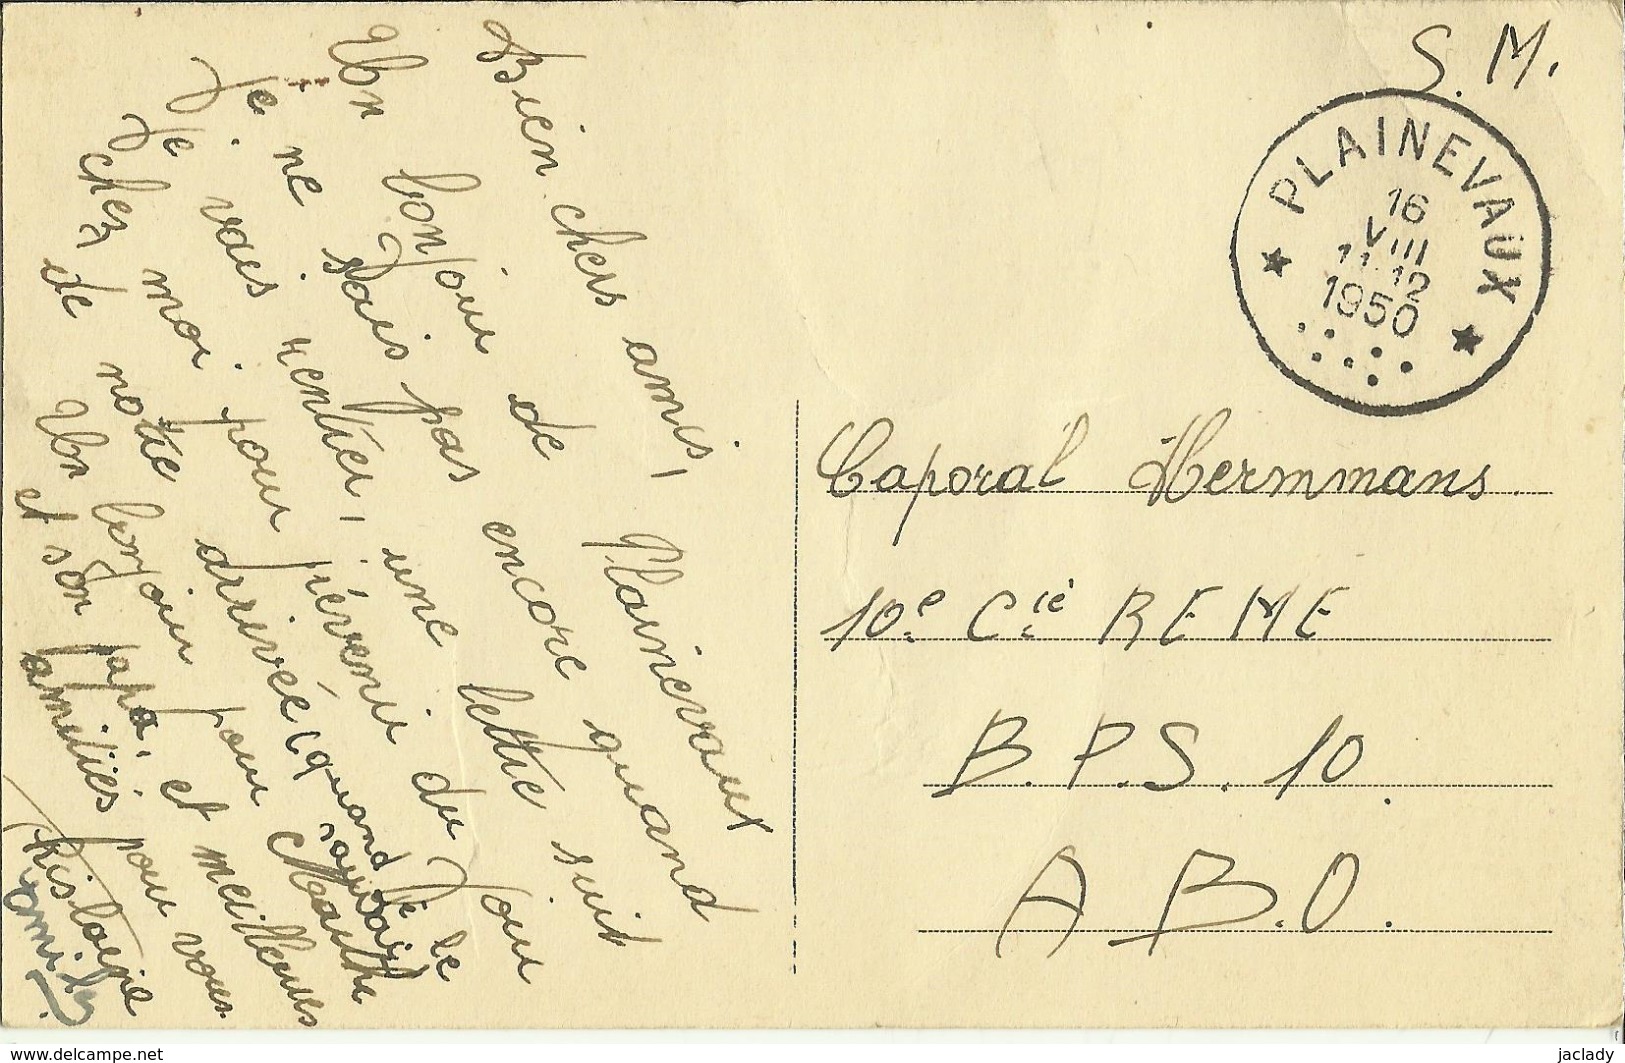 S. M.
PLAINEVAUX
16
VIII
11-12
1950
Bien chers amis,
Un bonjour de Plainevaux
Je ne sais pas encore quand
Je vais rentrer, une lettre suit
chez moi pour prévenir du jour
de notre arrivée (quand je le
saurais)
Un bonjour pour Marthe
et son papa, et meilleures
amitiés pour vous.
Ghislaine
Caporal Hermmans.
10e Cie REME
B.P.S. 10.
A B.O.
www.delcampe.net
jaclady